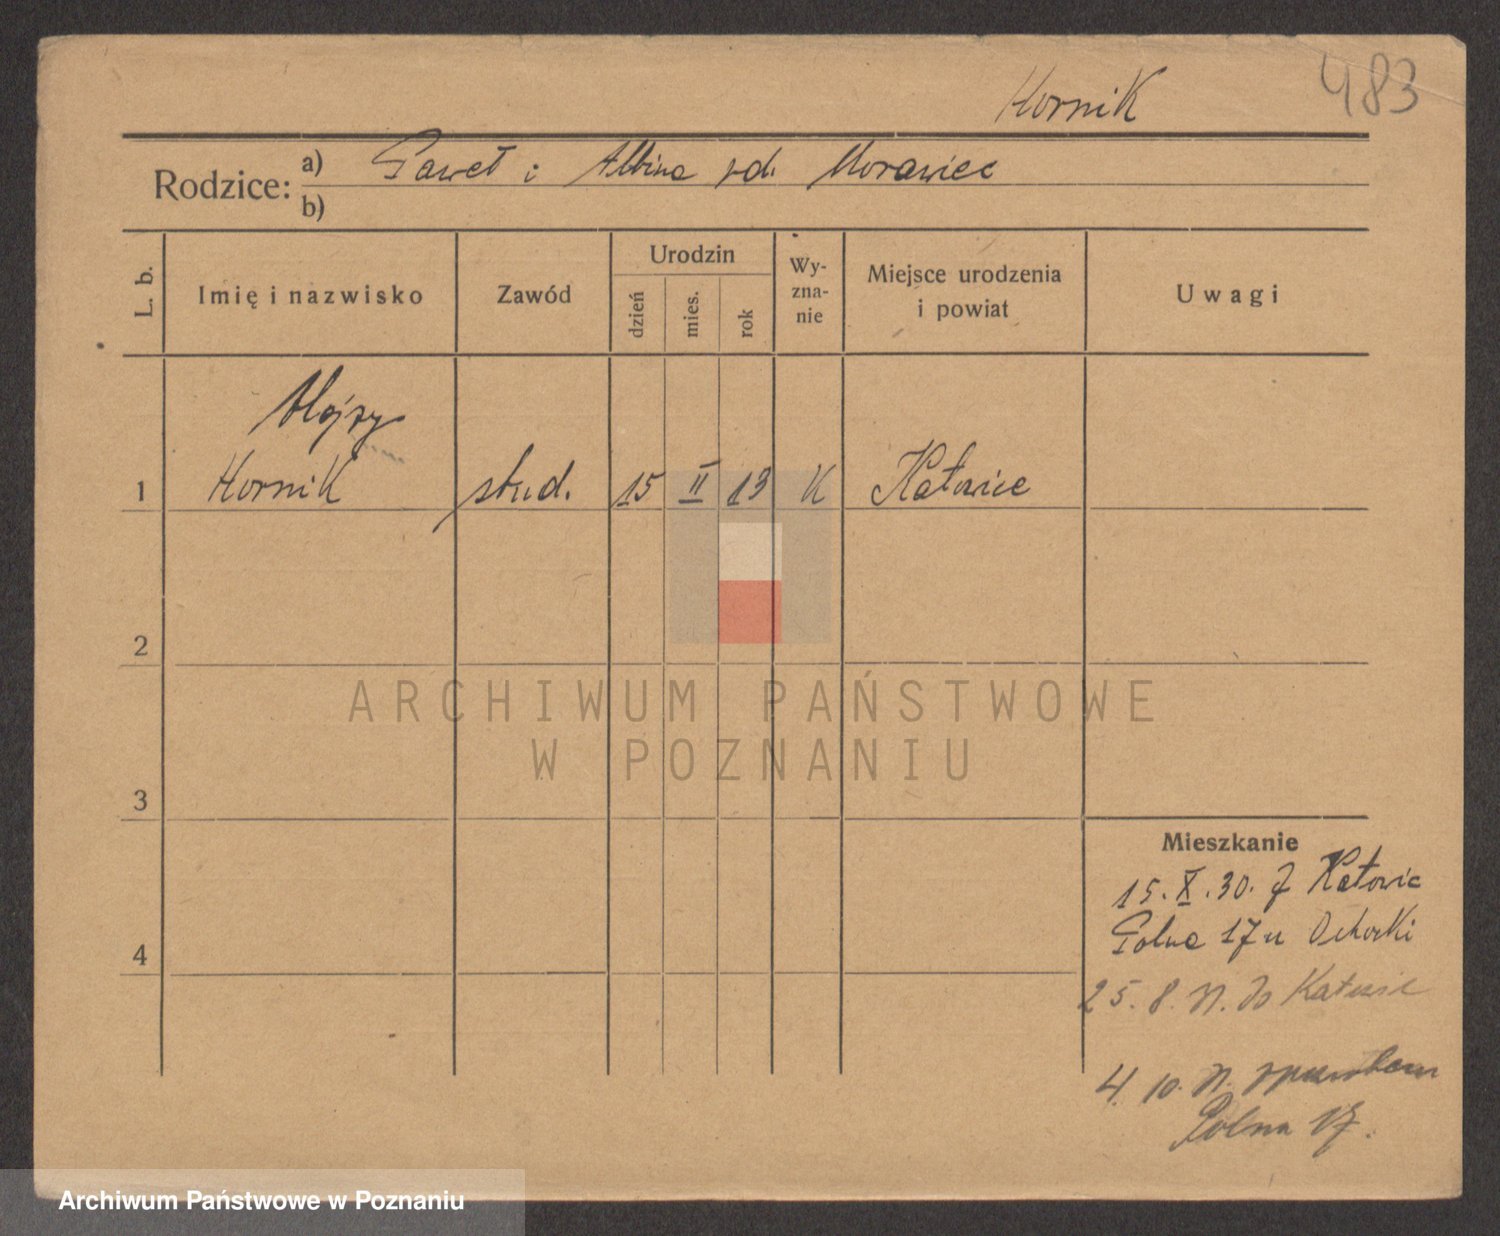 Hornik
483
Rodzice: a) Paweł i Albina rd. Morawiec
b)
L. b.
Imię i nazwisko
Zawód
Urodzin
dzień
mies.
rok
Wy-
zna-
nie
Miejsce urodzenia
i powiat
Uwagi
Alojzy
1 Hornik stud. 15 II 13 K Katowice
2
ARCHIWUM PAŃSTWOWE
W POZNANIU
3
Mieszkanie
15. X. 30. z Katowic
Polna 17 u
4
25. 8. do Katowic
4. 10.
Polna 17.
Archiwum Państwowe w Poznaniu